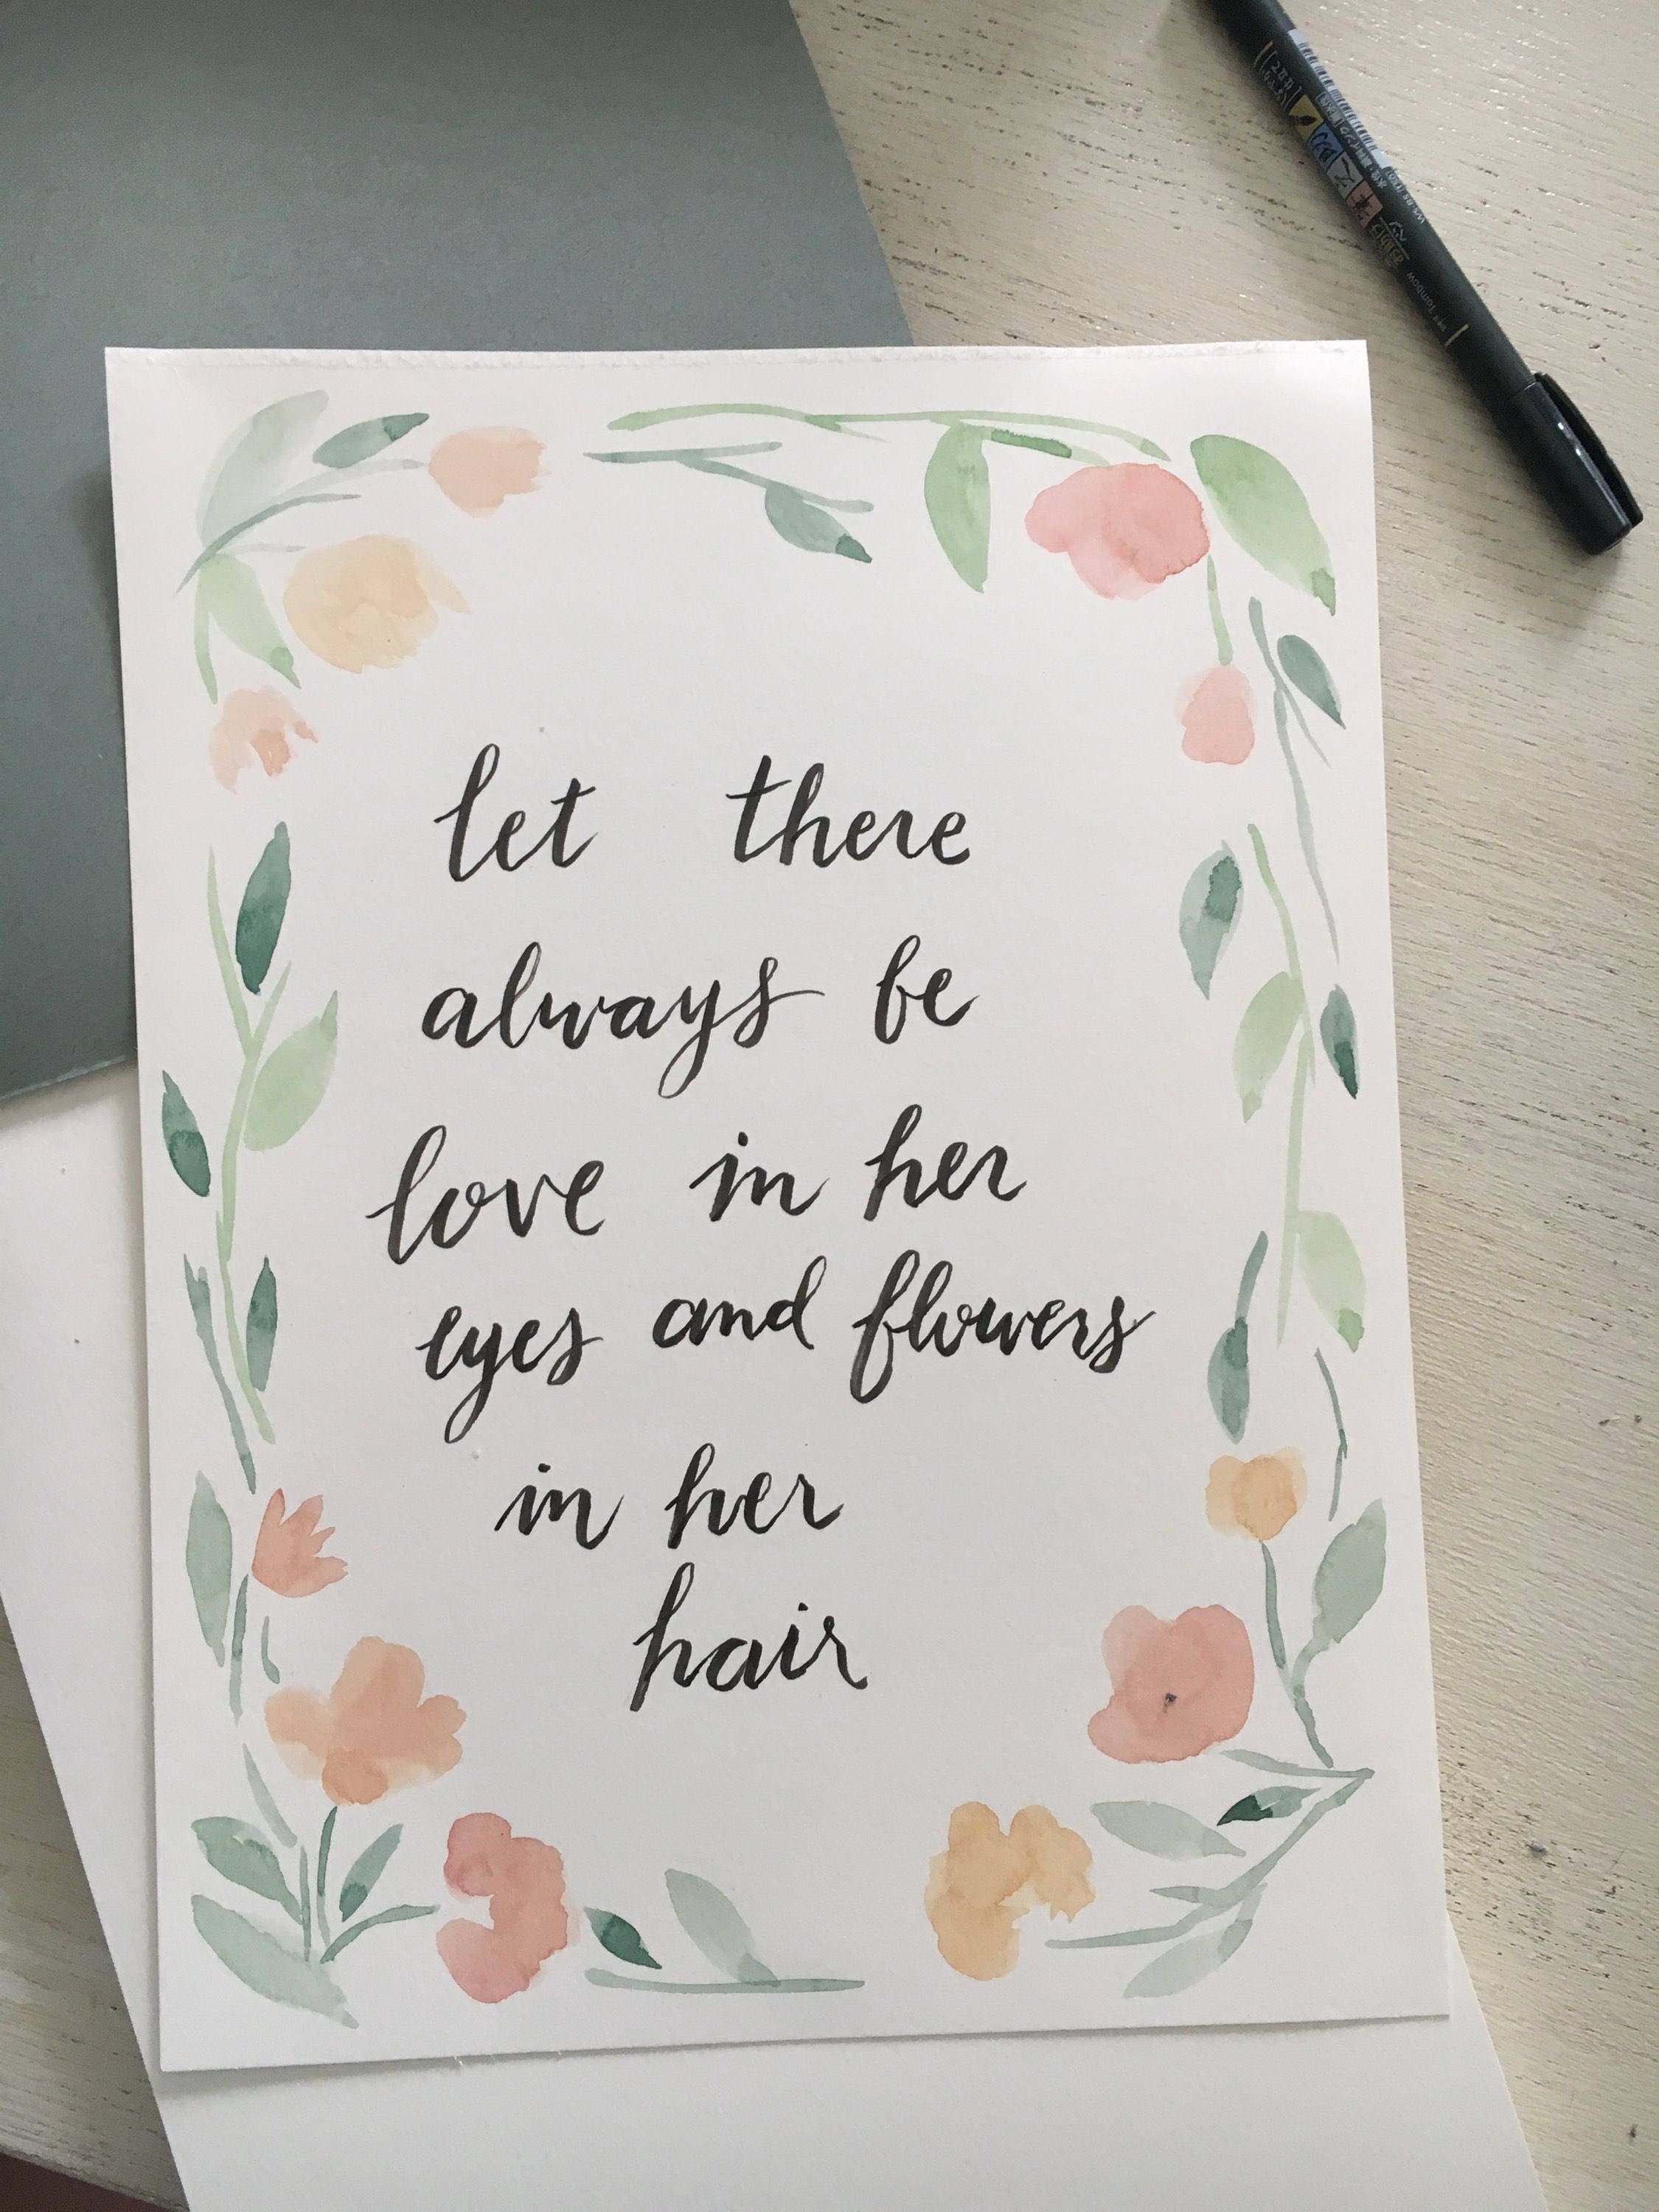 let there
always be
love in her
eyes and flowers
in her
hair
Tombow